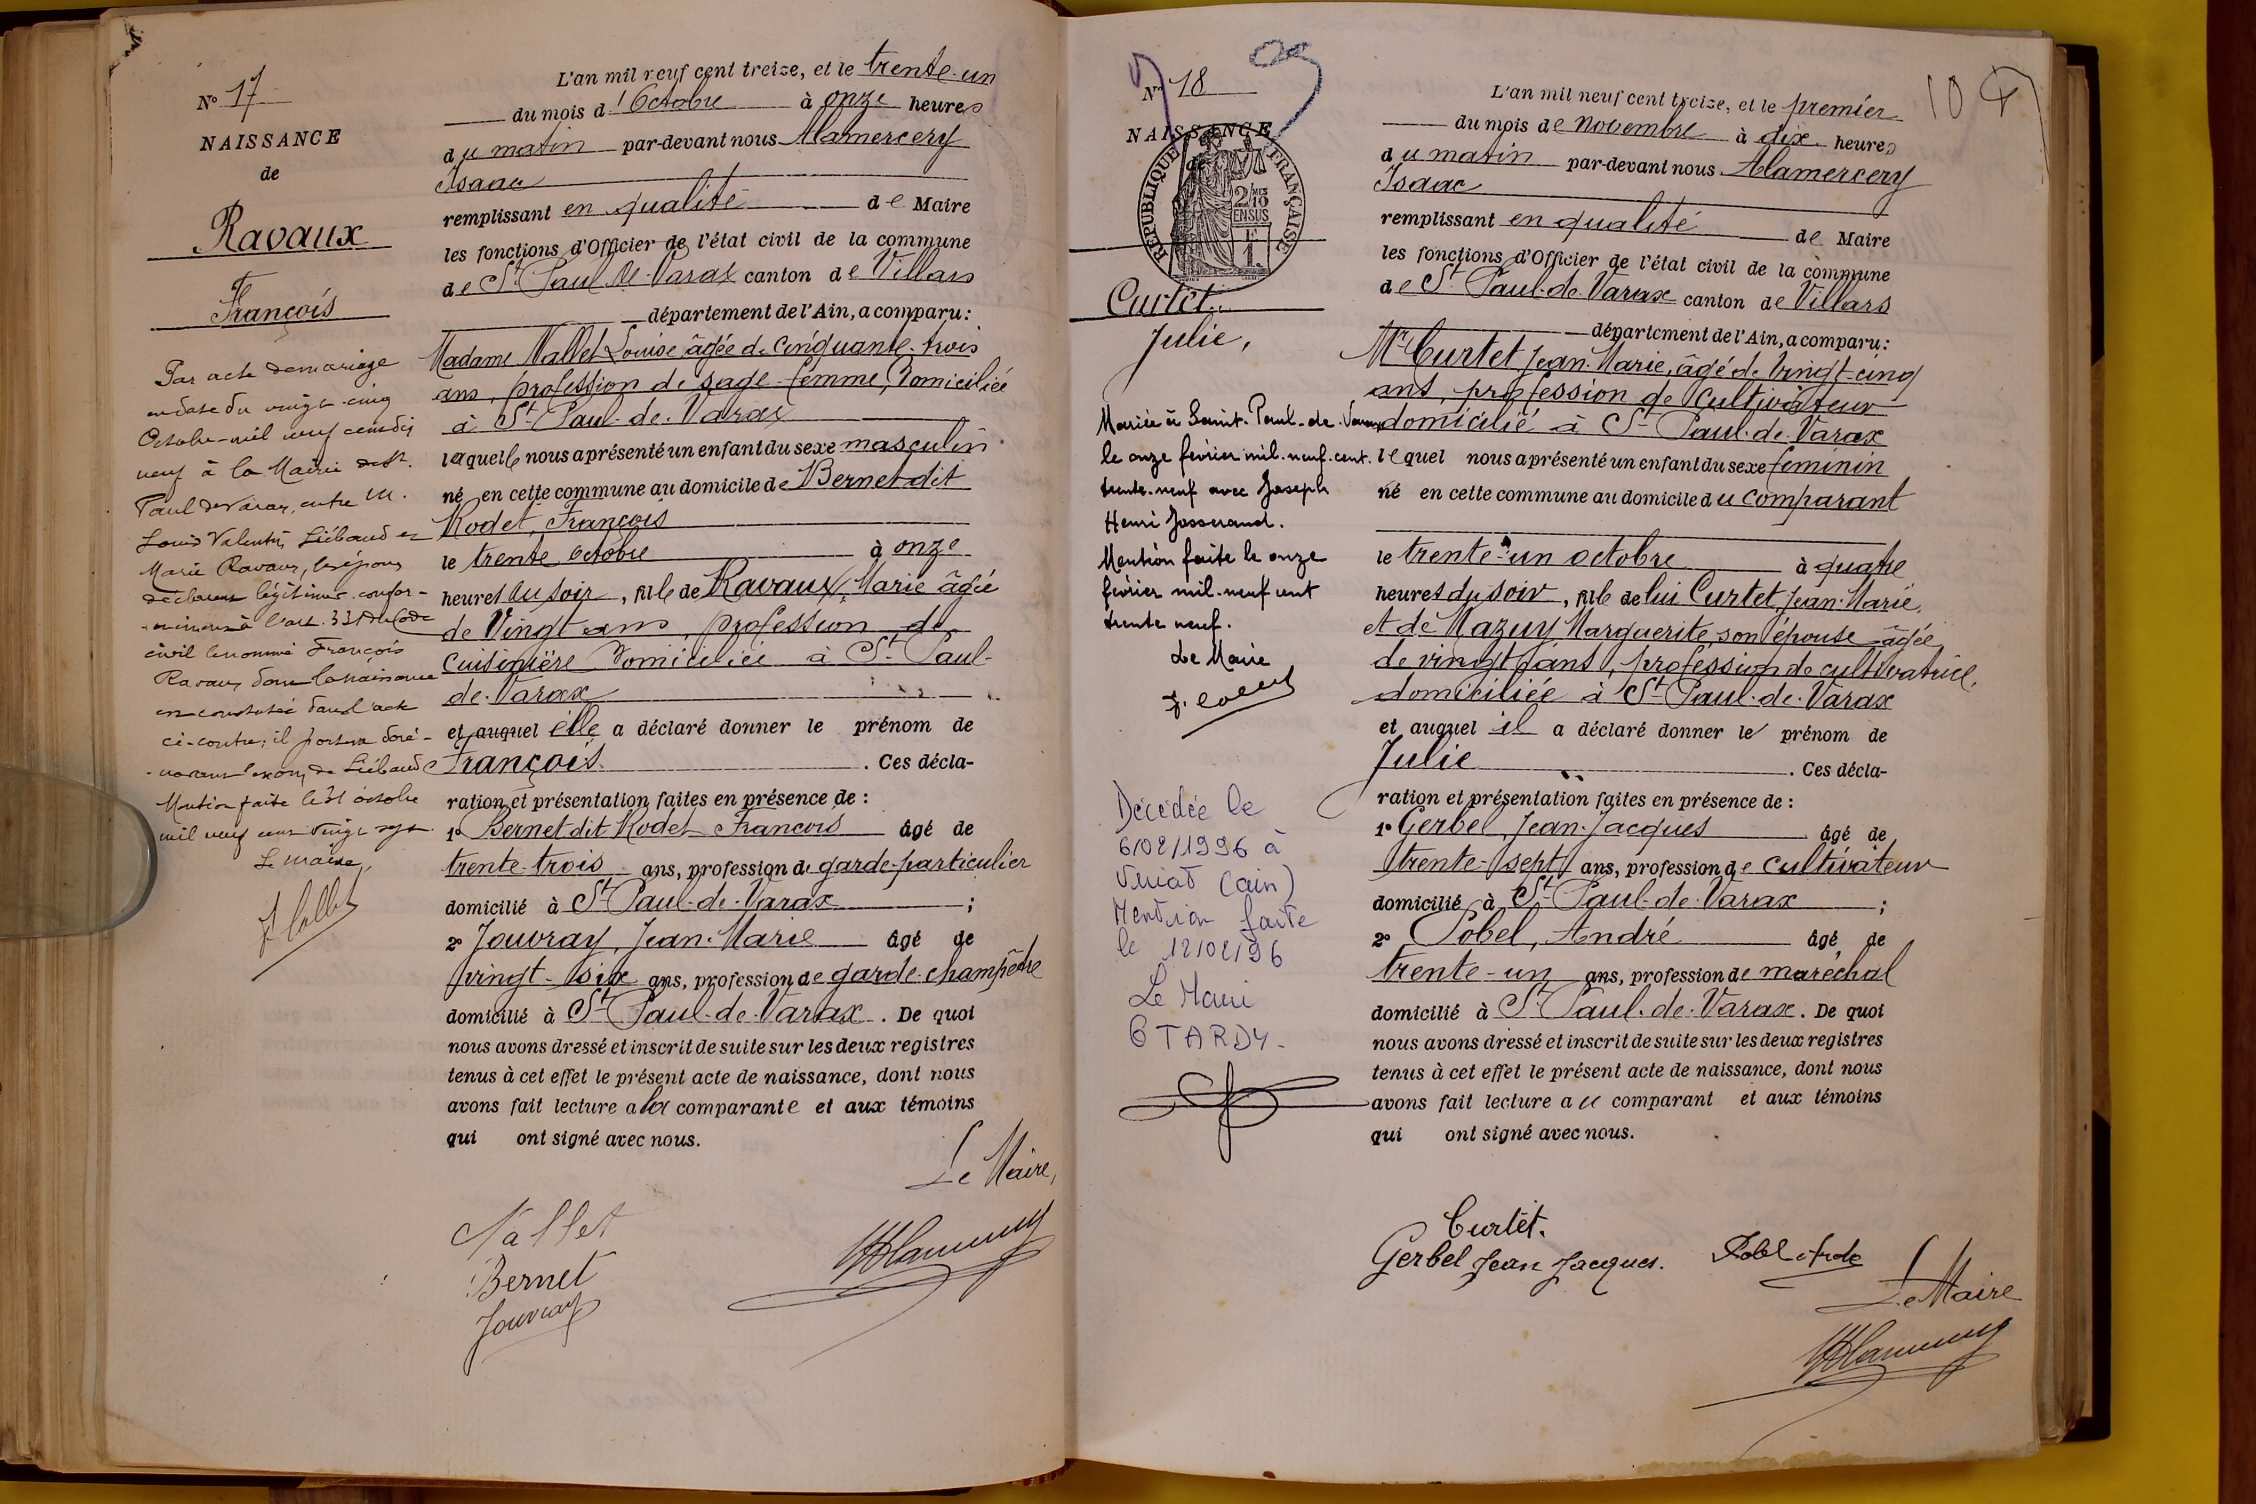 N° 17
NAISSANCE
de
Ravaux
François
Par acte de mariage
en date du vingt-cinq
Octobre mil neuf cent dix
neuf à la Mairie de St.
Paul de Varax, entre M.
Louis Valentin Liébaud et
Marie Ravaux, les époux
déclarent légitimer confor-
-mément à l'art. 331 du Code
civil le nommé François
Ravaux dont la naissance
est constatée dans l'acte
ci-contre; il portera doré-
-navant le nom de Liébaud
Mention faite le 31 octobre
mil neuf cent vingt sept.
Le maire,
L'an mil neuf cent treize, et le trente-un
du mois d'Octobre à onze heures
du matin par-devant nous Alamercery
Isaac
remplissant en qualité de Maire
les fonctions d'Officier de l'état civil de la commune
de St Paul de Varax canton de Villars
département de l'Ain, a comparu:
Madame Nallet Louise âgée de cinquante-trois
ans, profession de sage-femme, domiciliée
à St Paul-de-Varax
laquelle nous a présenté un enfant du sexe masculin
né en cette commune au domicile de Bernet dit
Rodet, François
le trente octobre à onze
heures du soir, fils de Ravaux, Marie âgée
de Vingt ans, profession de
cuisinière domiciliée à St Paul-
de-Varax
et auquel elle a déclaré donner le prénom de
François. Ces décla-
ration et présentation faites en présence de :
1° Bernet dit Rodet François âgé de
trente-trois ans, profession de garde-particulier
domicilié à St Paul-de-Varax ;
2° Jouvray, Jean-Marie âgé de
vingt-six ans, profession de garde-champêtre
domicilié à St Paul-de-Varax. De quoi
nous avons dressé et inscrit de suite sur les deux registres
tenus à cet effet le présent acte de naissance, dont nous
avons fait lecture a la comparante et aux témoins
qui ont signé avec nous.
Le Maire,
Nallet
Bernet
Jouvray
N° 18
NAISSANCE
de
RÉPUBLIQUE FRANÇAISE
2/10 MES
EN SUS
F
1.
Curtet
Julie,
Mariée à Saint-Paul-de-Varax
le onze février mil-neuf-cent-
trente-neuf avec Joseph
Henri Josserand.
Mention faite le onze
février mil-neuf cent
trente neuf.
Le Maire
Décédée le
6/02/1996 à
Viriat (ain)
Mention faite
le 12/02/96
Le Maire
TARDY-
10
L'an mil neuf cent treize, et le premier
du mois de novembre à dix heures
du matin par-devant nous Alamercery
Isaac
remplissant en qualité de Maire
les fonctions d'Officier de l'état civil de la commune
de St Paul-de-Varax canton de Villars
département de l'Ain, a comparu:
Mr Curtet Jean-Marie, âgé de Vingt-cinq
ans, profession de Cultivateur
domicilié à St Paul-de-Varax
lequel nous a présenté un enfant du sexe féminin
né en cette commune au domicile du comparant
le trente-un octobre à quatre
heures du soir, fille de lui Curtet, Jean-Marie,
et de Mazuy Marguerite son épouse âgée
de vingt ans, profession de cultivatrice,
domiciliée à St Paul-de-Varax
et auquel il a déclaré donner le prénom de
Julie. Ces décla-
ration et présentation faites en présence de :
1° Gerbel, Jean-Jacques âgé de
trente-sept ans, profession de cultivateur
domicilié à St Paul-de-Varax ;
2° Pobel, André âgé de
trente-un ans, profession de maréchal
domicilié à St Paul-de-Varax. De quoi
nous avons dressé et inscrit de suite sur les deux registres
tenus à cet effet le présent acte de naissance, dont nous
avons fait lecture au comparant et aux témoins
qui ont signé avec nous.
Curtet.
Gerbel Jean Jacques. Pobel
Le Maire